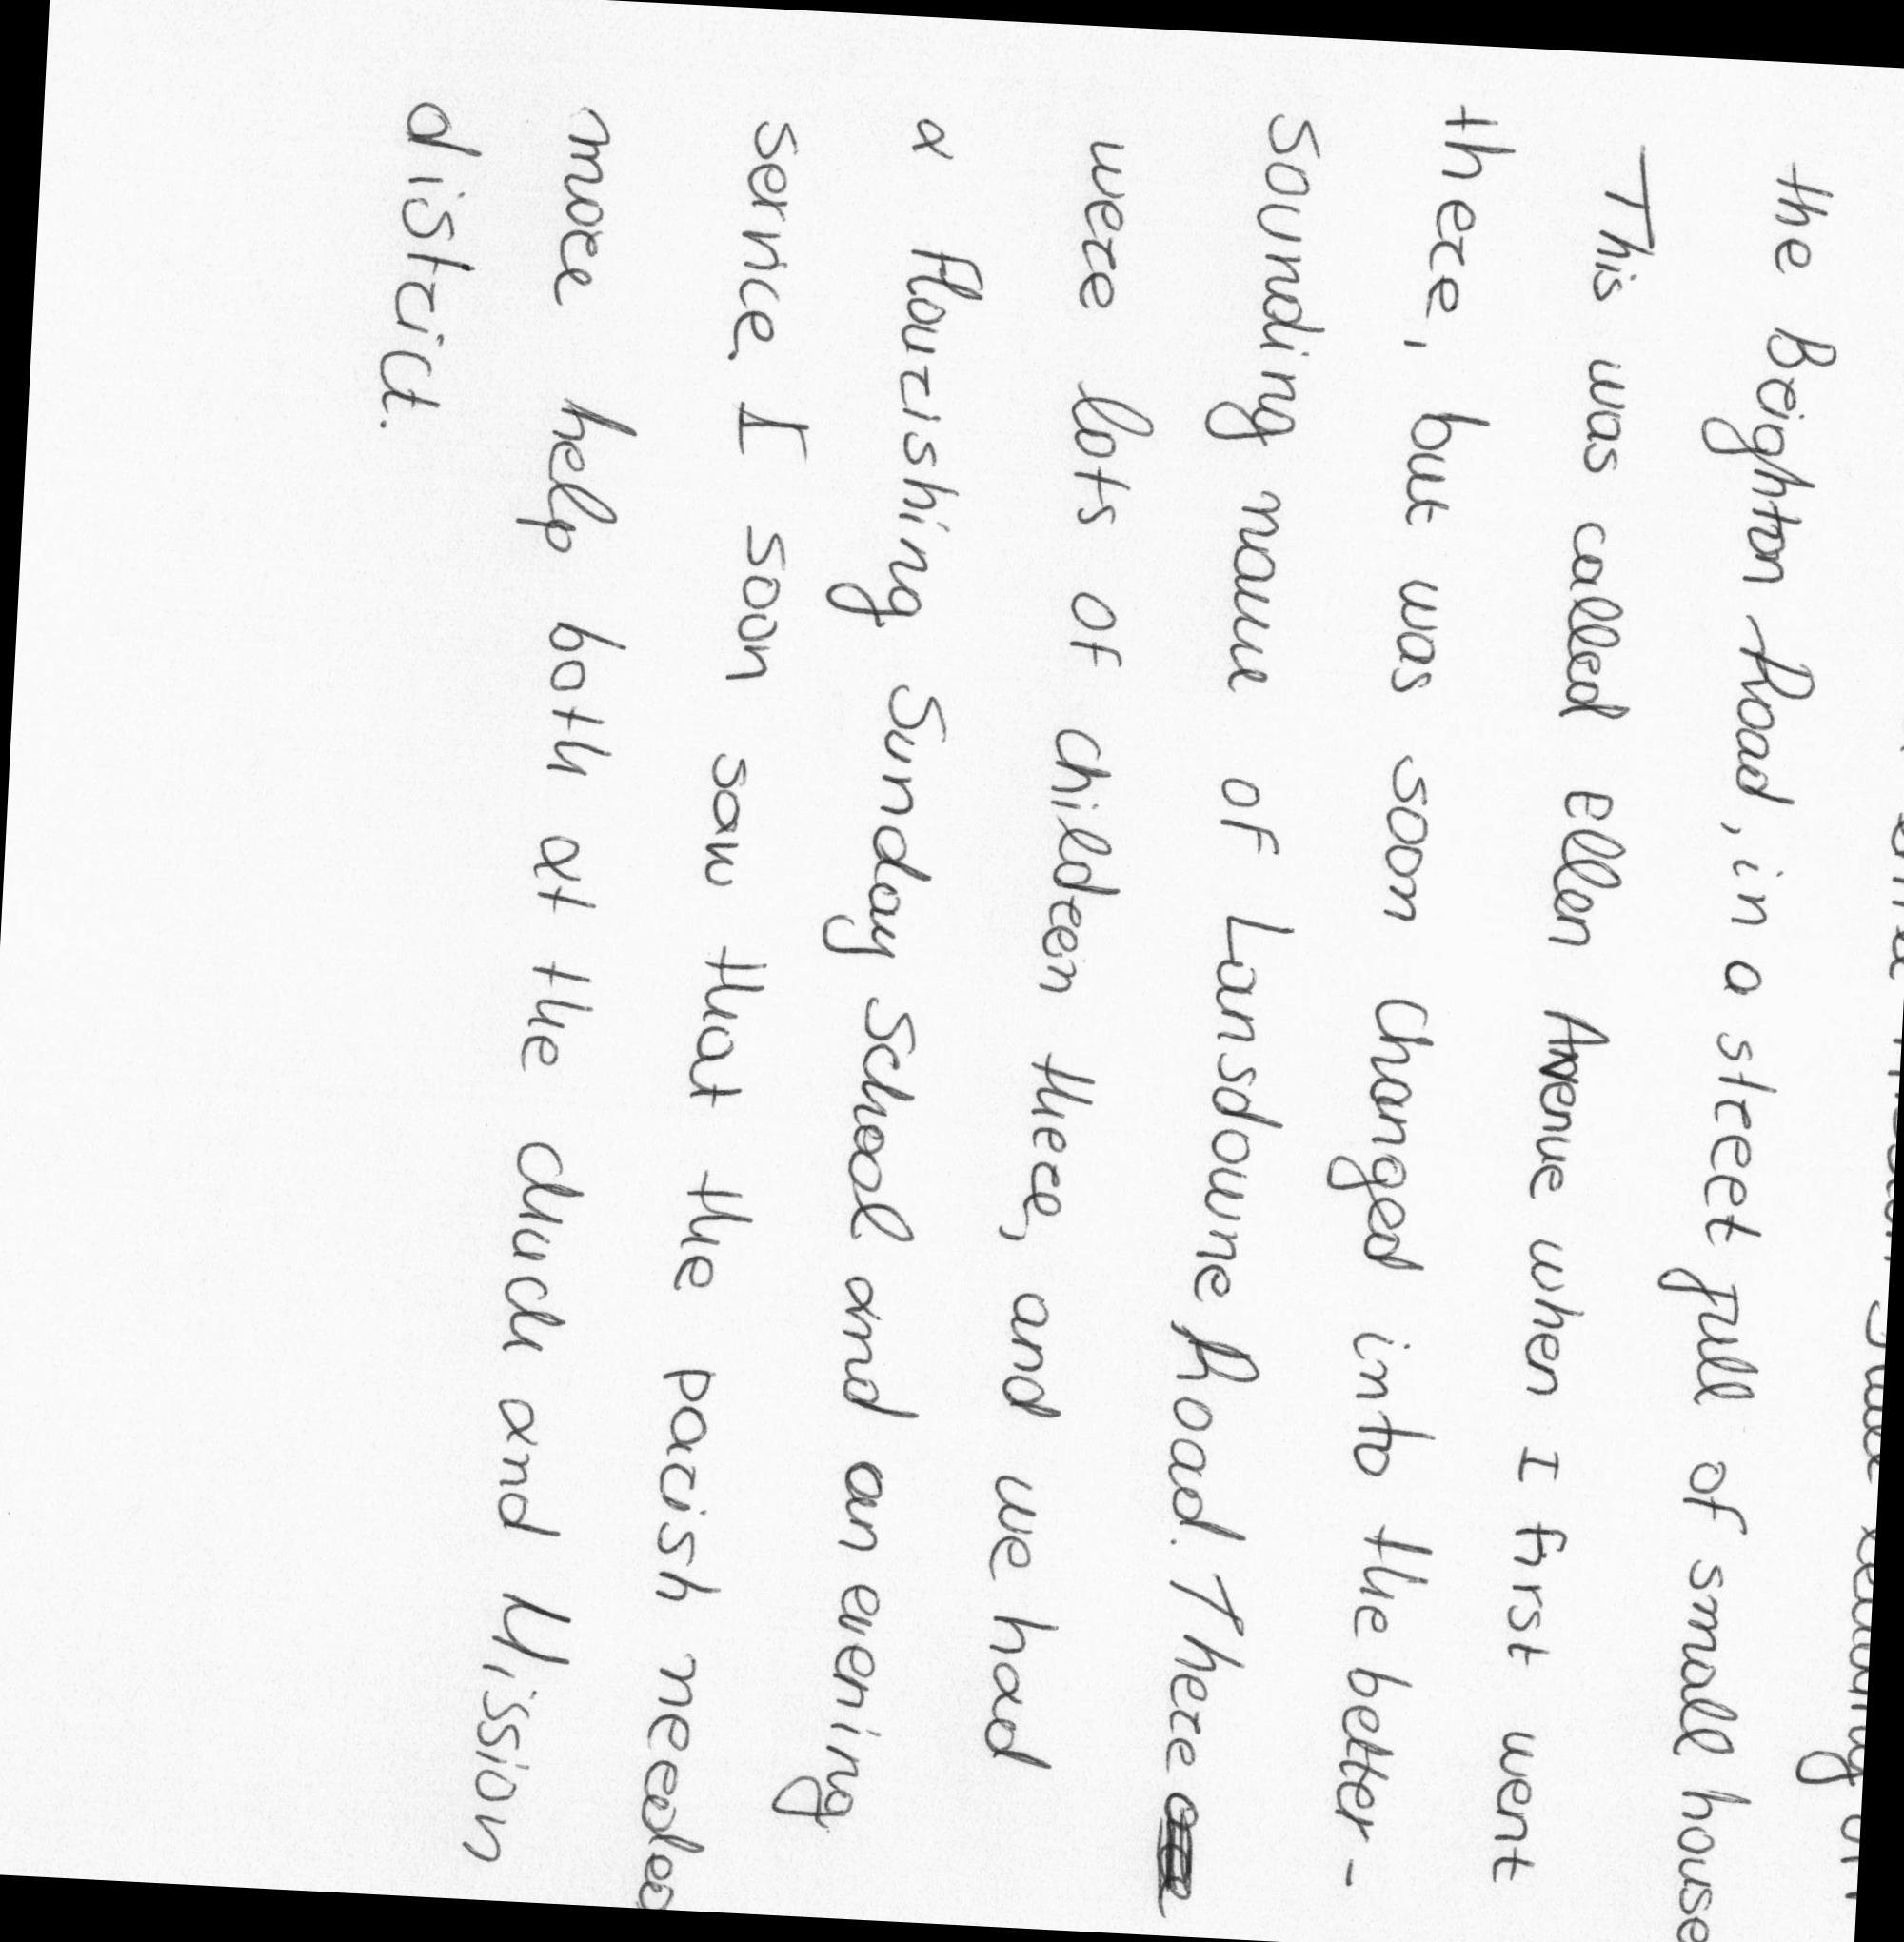 the Brighton Road, in a street full of small house
This was called Ellen Avenue when I first went
there, but was soon changed into the better-
sounding name of Lansdowne Road. There
were lots of children there, and we had
a flourishing Sunday School and an evening
service. I soon saw that the parish needed
more help both at the church and Mission
district.